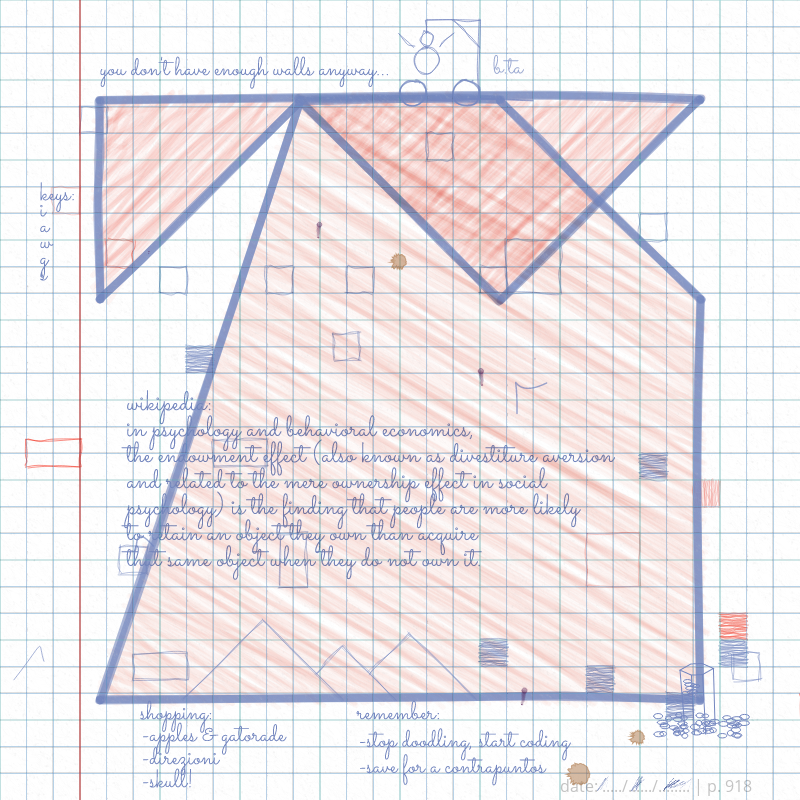 you don't have enough walls anyway...
b.ta
keys:
i
a
w
g
s
wikipedia:
in psychology and behavioral economics,
the endowment effect (also known as divestiture aversion
and related to the mere ownership effect in social
psychology) is the finding that people are more likely
to retain an object they own than acquire
that same object when they do not own it.
shopping:
-apples & gatorade
-direzioni
-skull!
remember:
-stop doodling, start coding
-save for a contrapuntos
date:...../...../........ | p. 918